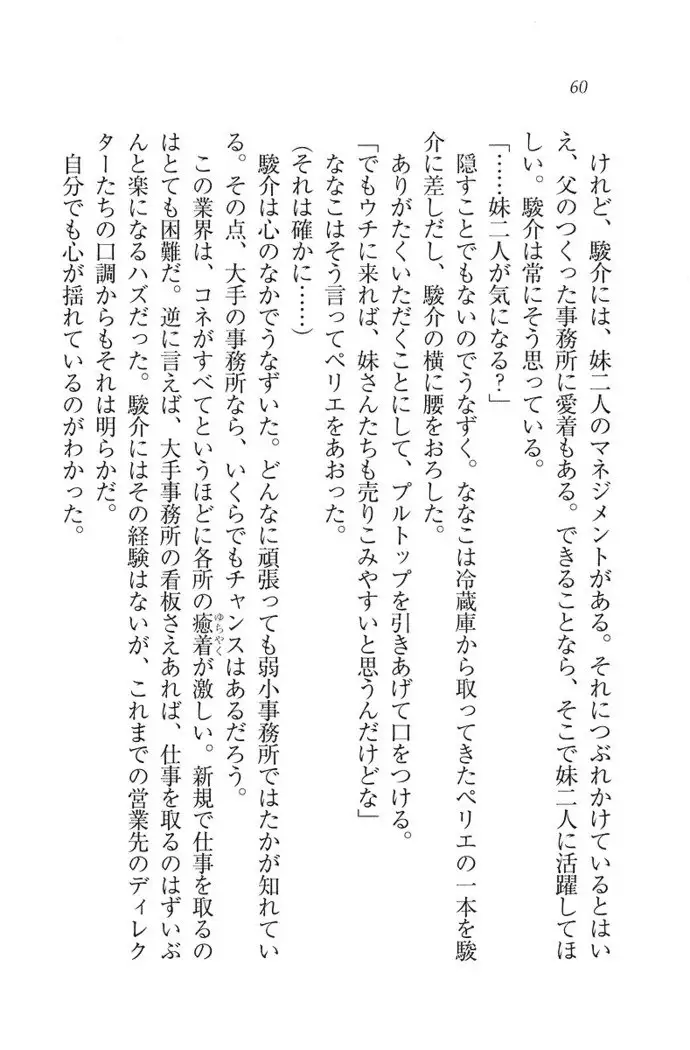 60
けれど、駿介には、妹二人のマネジメントがある。それにつぶれかけているとはい
え、父のつくった事務所に愛着もある。できることなら、そこで妹二人に活躍してほ
しい。駿介は常にそう思っている。
「……妹二人が気になる？」
隠すことでもないのでうなずく。ななこは冷蔵庫から取ってきたペリエの一本を駿
介に差しだし、駿介の横に腰をおろした。
ありがたくいただくことにして、プルトップを引きあげて口をつける。
「でもウチに来れば、妹さんたちも売りこみやすいと思うんだけどな」
ななこはそう言ってペリエをあおった。
（それは確かに……）
駿介は心のなかでうなずいた。どんなに頑張っても弱小事務所ではたかが知れてい
る。その点、大手の事務所なら、いくらでもチャンスはあるだろう。
この業界は、コネがすべてというほどに各所の癒着が激しい。新規で仕事を取るの
ゆちやく
はとても困難だ。逆に言えば、大手事務所の看板さえあれば、仕事を取るのはずいぶ
んと楽になるハズだった。駿介にはその経験はないが、これまでの営業先のディレク
ターたちの口調からもそれは明らかだ。
自分でも心が揺れているのがわかった。